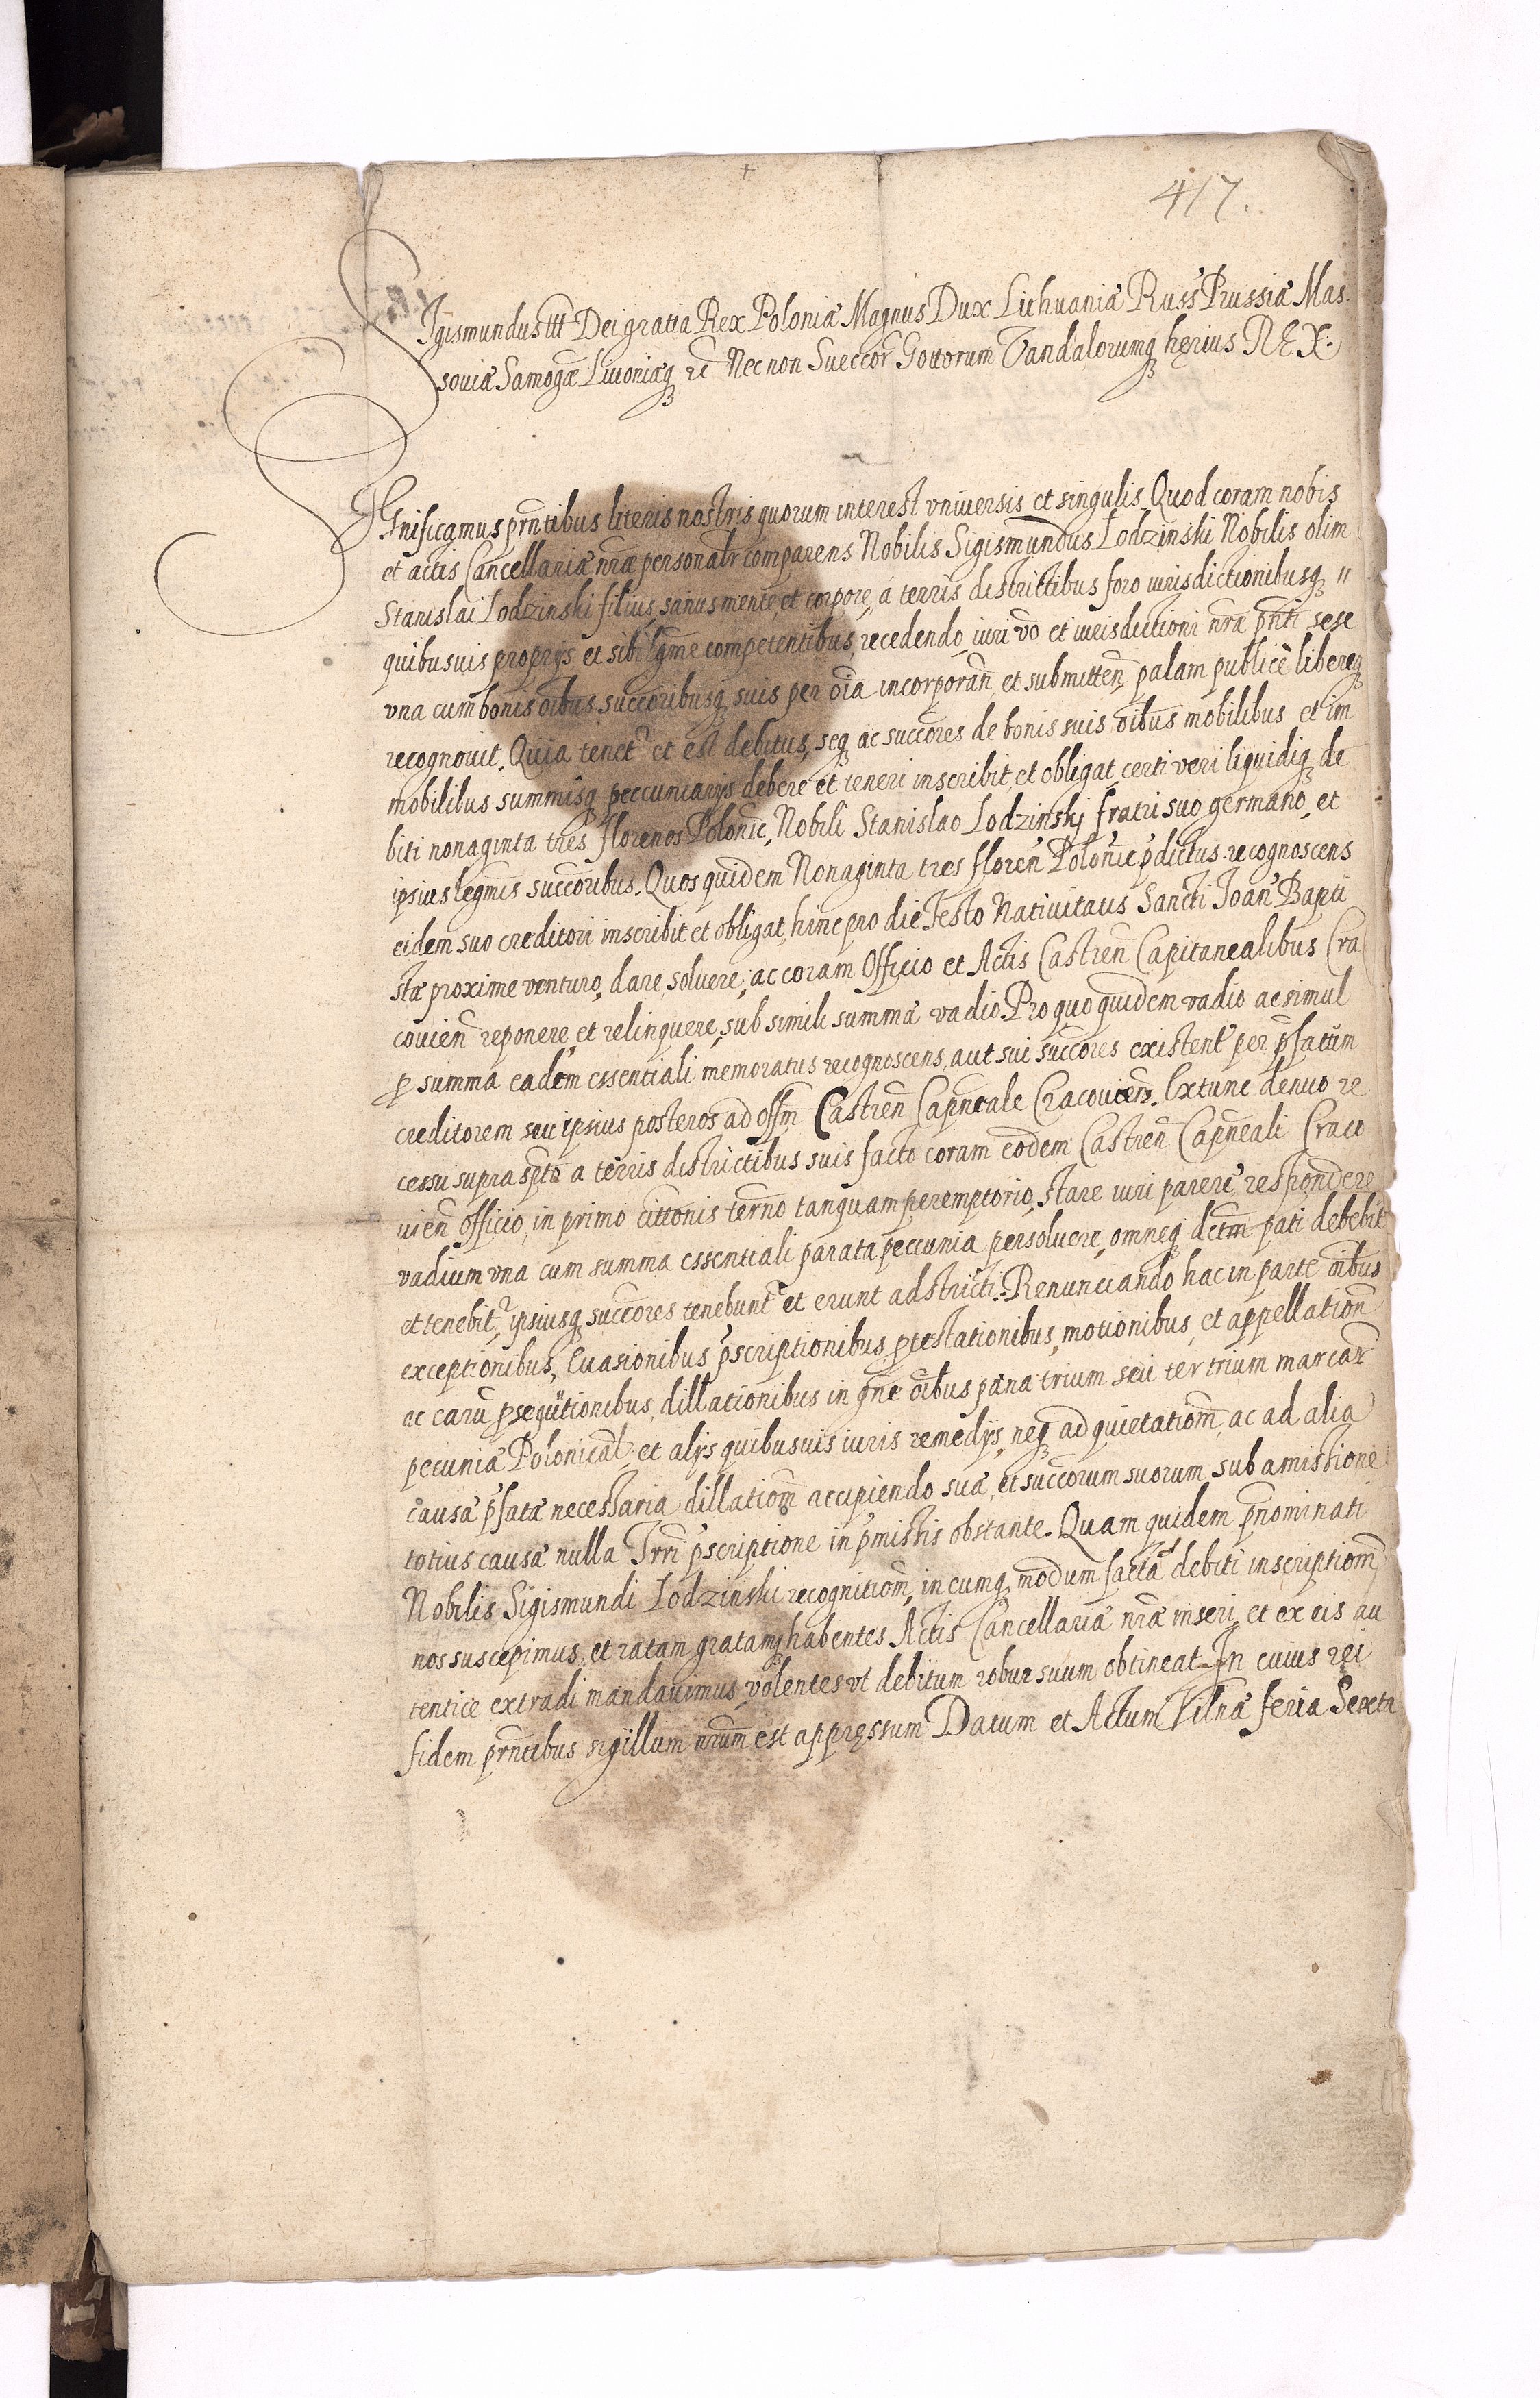 417.
Sigismundus III Dei gratia Rex Poloniæ Magnus Dux Lithuaniæ Russ Prussiæ Mas
soviæ Samog̃æ Livoniæq₃ etc̃ Nec non Sueccor̃ Gottorum Vandalorumq₃ hęrius REX.
Significamus prñtibus literis nostris quorum interest vniuersis et singulis. Quod coram nobis
et actis Cancellariæ nr̃æ personalr̃ comparens Nobilis Sigismundus Lodzinski Nobilis olim
Stanislai Lodzinski filius, sanus mente, et corpore, á terris districtibus foro iurisdictionibusq₃ "
quibusuis proprijs et sibi lg̃me competentibus, recedendo, iuri vo᷃ et iurisdictioni nr̃æ pñti sese
vna cum bonis oĩbus succoribusq₃ suis per oĩa incorporañ et submitteñ palam publicè libereq₃
recognouit. Quia tenetʳ et est debitus, seq₃ ac succores de bonis suis oĩbus mobilibus et im
mobilibus summisq₃ peccuniarijs debere et teneri inscribit, et obligat, certi veri liquidiq₃ de
biti nonaginta tres florenos Polonic̃, Nobili Stanislao Lodzinskj fratri suo germano, et
ipsius legm̃is succoribus. Quos quidem Nonaginta tres floreñ Polonic̃ p̃dictus recognoscens
eidem suo creditori inscribit et obligat, hinc pro die festo Natiuitatis Sancti Joañ Bapti
stæ proxime venturo, dare soluere, ac coram Officio et Actis Castreñ Capitanealibus Cra
couieñ reponere, et relinquere, sub simili summæ vadio. Pro quo quidem vadio ac simul
ꝓ summa eadem essentiali memoratus recognoscens, aut sui succores existent per p̃fatum
creditorem seu ipsius posteros ad offm̃ Castreñ Capñeale Cracouieñ. Extunc denuo re
cessu supra sp̃to a terris districtibus suis facto coram eodem Castreñ Capñeali Craco
uieñ officio, in primo citt̃onis termo tanquam peremptorio, stare iuri parere, respondere
vadium vna cum summa essentiali parata peccunia persoluere, omneq₃ dct̃m pati debebit
et tenebitʳ, ipsiusq₃ succores tenebuntʳ et erunt adstricti. Renunciando hac in parte oĩbus
exceptionibus, Euasionibus p̃scriptionibus ꝓtestationibus, motionibus, et appellatioñ
ac earũ ꝓsequtionibus, dillationibus in gñe oĩbus pæna trium seu ter trium marcar̃
pecuniæ Polonical̃, et alijs quibusuis iuris remedijs, neq₃ ad quietatiom̃, ac ad alia
causæ p̃fatæ necessaria dillatiom̃ accipiendo suæ, et succorum suorum sub amissione
totius causæ nulla Trr̃i p̃scriptione in p̃missis obstante. Quam quidem p̃nominati
Nobilis Sigismundi Lodzinski recognitiom̃, in eumq₃ modum factã debiti inscriptiom̃
nos suscepimus, et ratam gratamq₃ habentes Actis Cancellariæ nr̃æ inseri, et ex eis au
tentice extradi mandauimus, volentes vt debitum robur suum obtineat. In cuius rei
fidem prñtibus sigillum nrum̃ est appręssum Datum et Actum Vilnæ feria Sexta